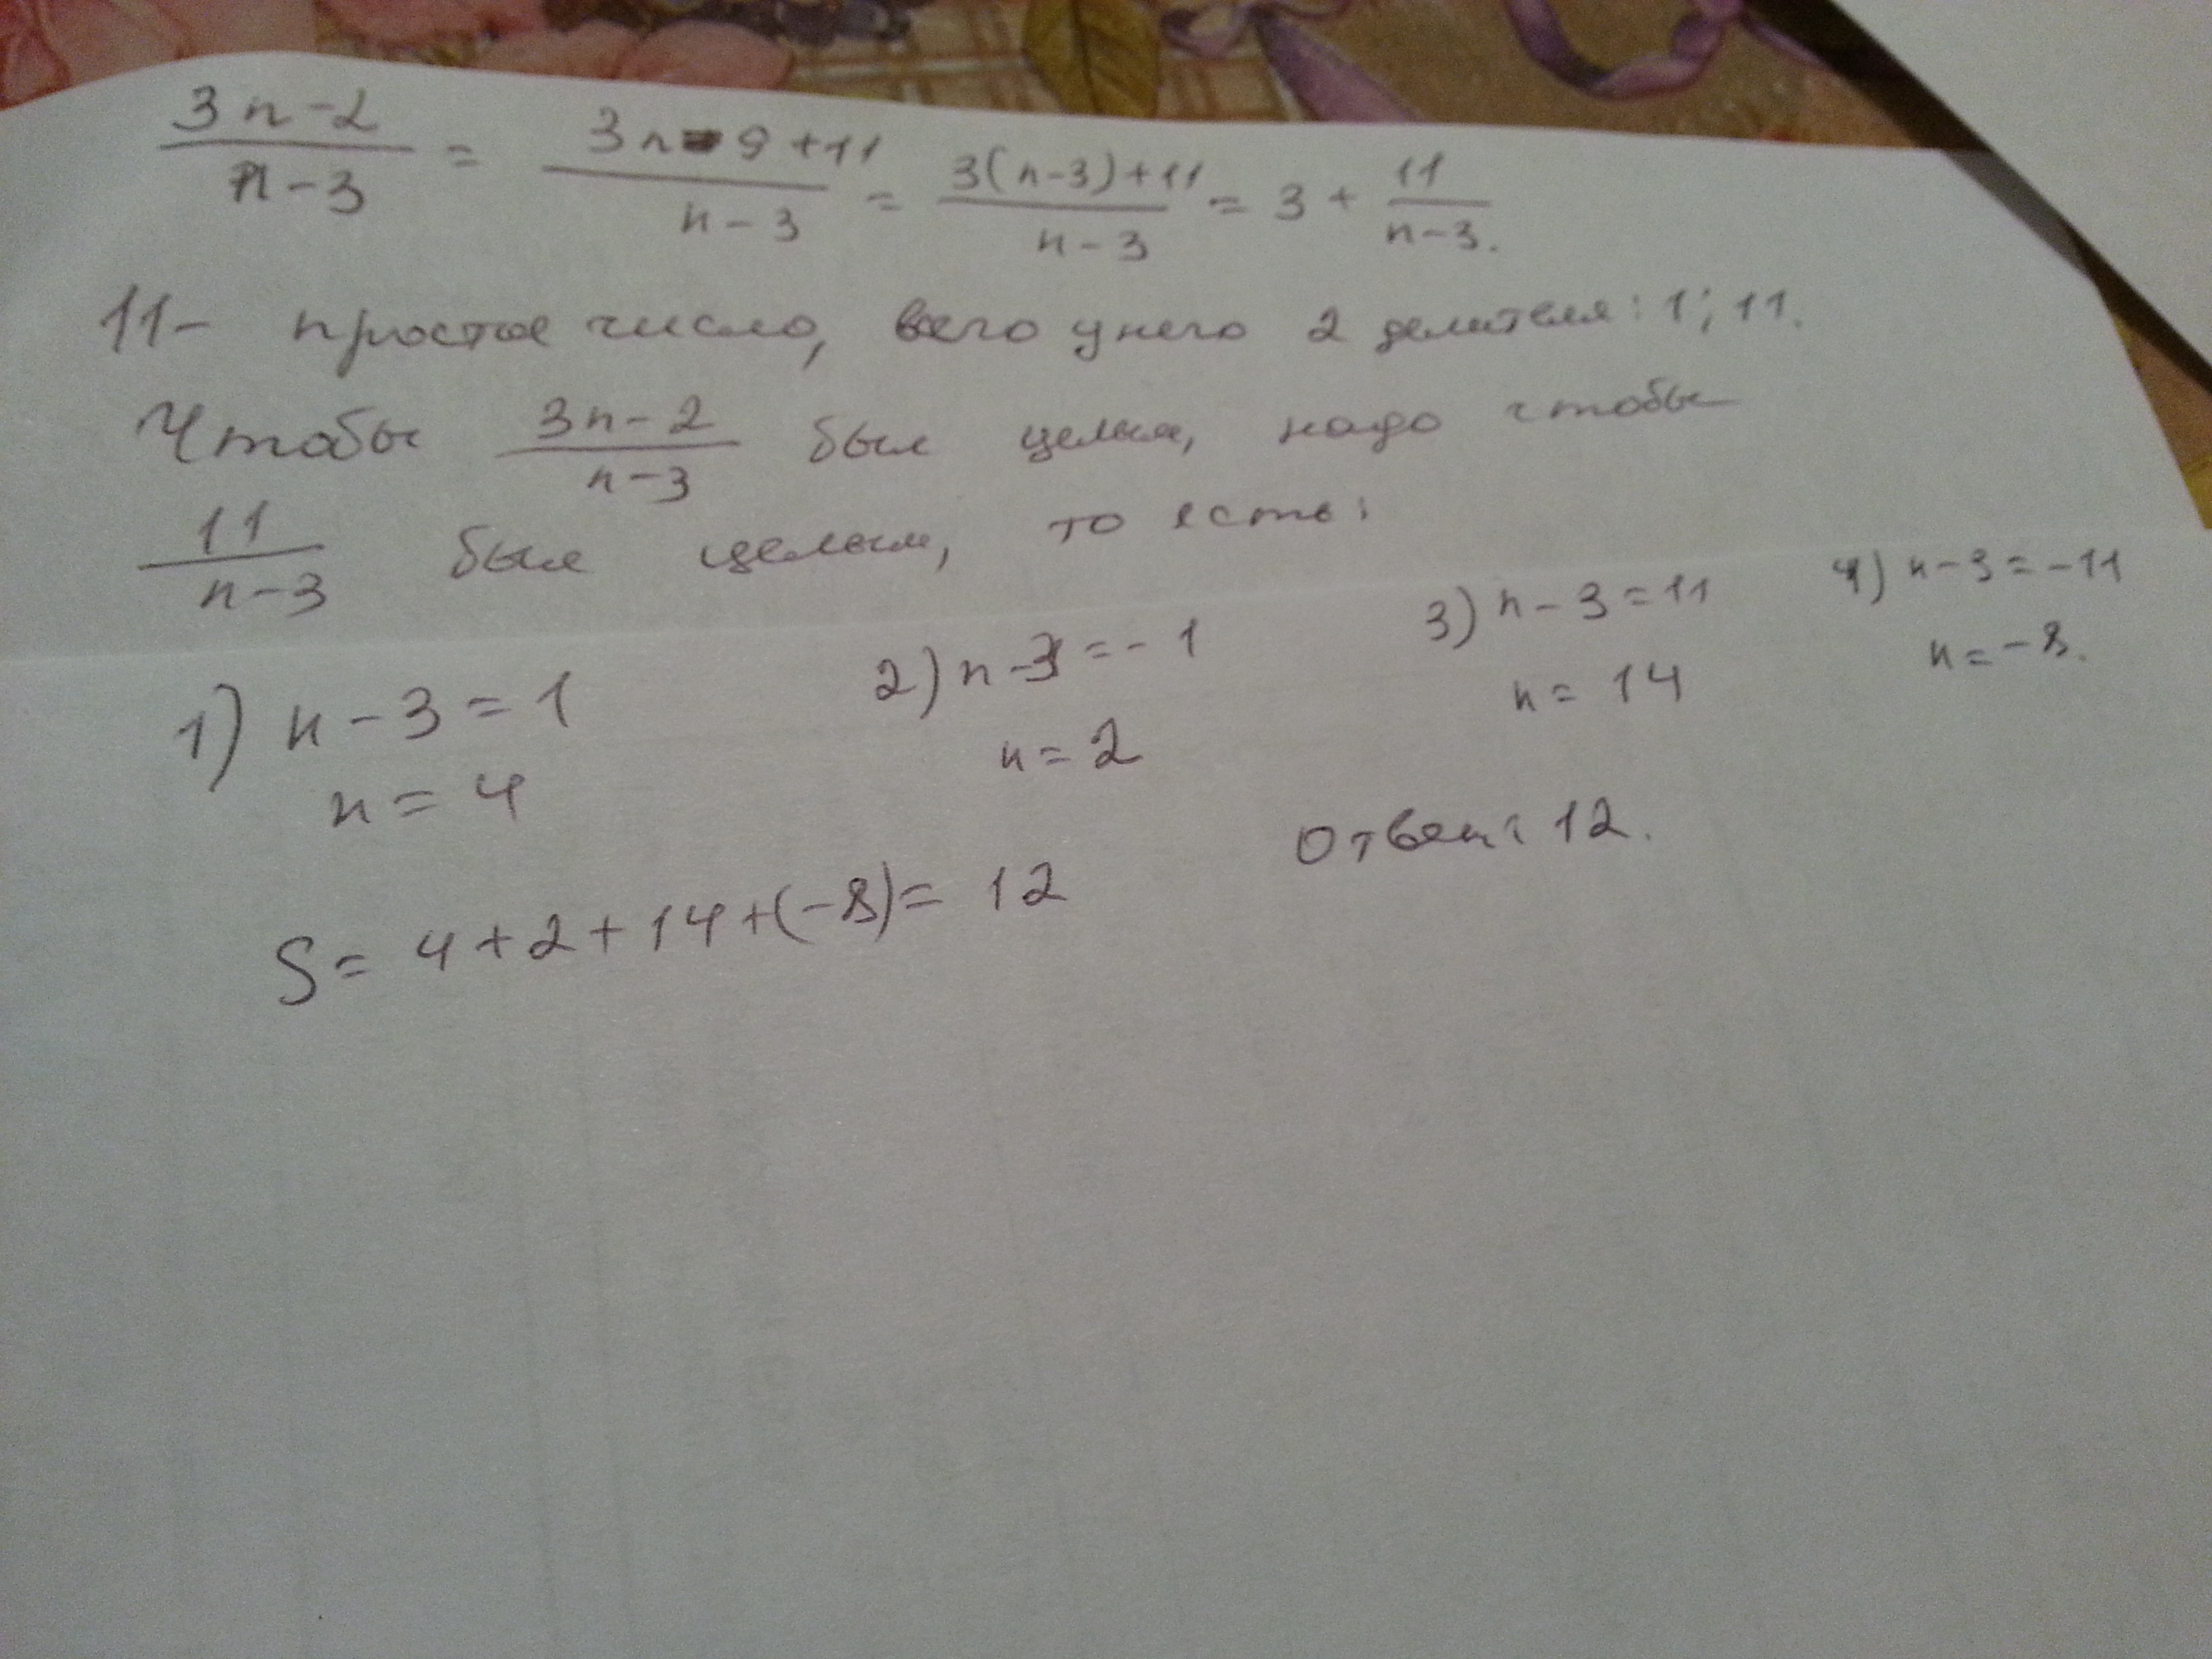 3n-2/n-3 = 3n-9+11/n-3 = 3(n-3)+11/n-3 = 3 + 11/n-3.
11- простое число, всего у него 2 делителя: 1; 11.
Чтобы 3n-2/n-3 был целым, надо чтобы
11/n-3 был целым, то есть:
1) n-3=1 2) n-3=-1 3) n-3=11 4) n-3=-11
n=4 n=2 n=14 n=-8.
S= 4+2+14+(-8)= 12 Ответ: 12.